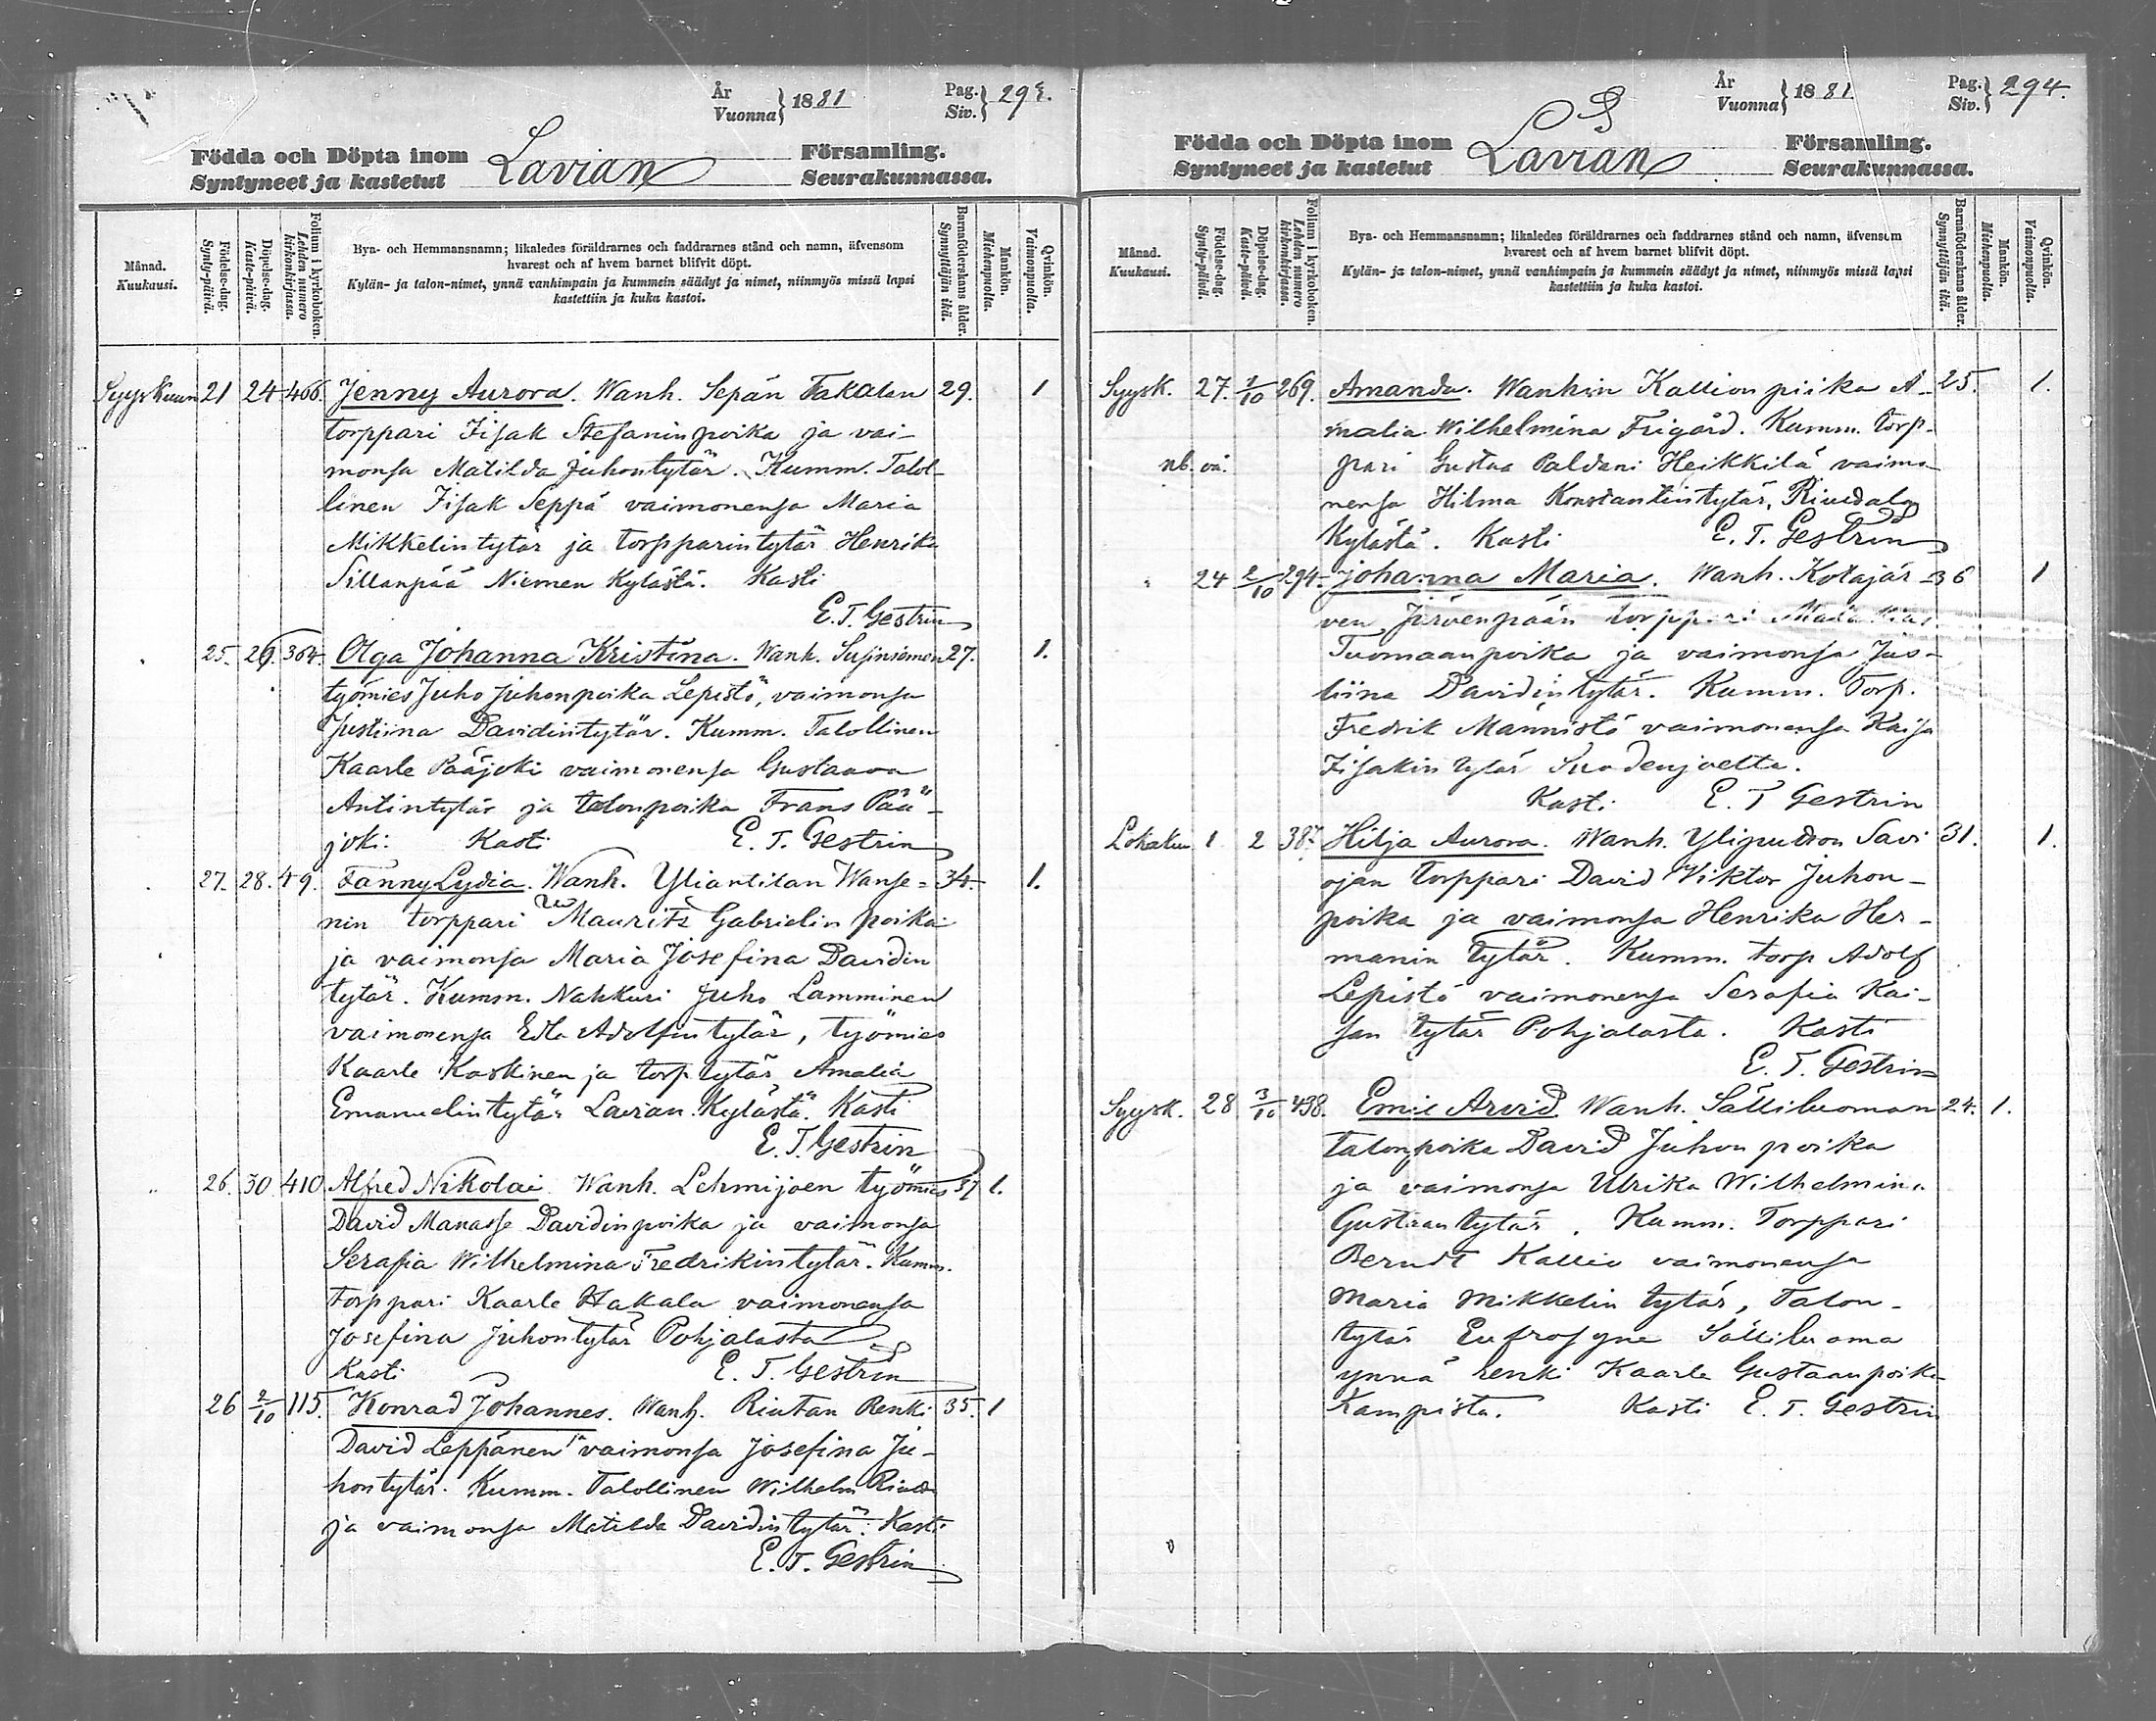 År
Vuonna } 1881
Pag.
Siv. } 293.
Födda och Döpta inom
Syntyneet ja kastetut
Lavian
Församling.
Seurakunnassa.
Månad.
Kuukausi.
Födelse-dag.
Synty-päivä.
Döpelse-dag.
Kaste-päivä.
Folium i kyrkoboken.
Lehden numero kirkonkirjassa.
Bya- och Hemmansnamn; likaledes föräldrarnes och faddrarnes stånd och namn, äfvensom
hvarest och af hvem barnet blifvit döpt.
Kylän- ja talon-nimet, ynnä vanhimpain ja kummein säädyt ja nimet, niinmyös missä lapsi
kastettiin ja kuka kastoi.
Barnaföderskans ålder.
Synnyttäjän ikä.
Mankön.
Miehenpuolta.
Qvinkön.
Vaimonpuolta.
Syyskuun 21 24 466. Jenny Aurora. Wanh. Sepän Takalan 29. 1
torppari Iisak Stefanin poika ja vai-
monsa Matilda Juhontytär. Kumm. Talol-
linen Iisak Seppä vaimonensa Maria
Mikkelintytär ja torpparintytär Henrika
Sillanpää Niemen Kylästä. Kasti
E. T. Gestrin
25. 26. 364. Olga Johanna Kristina. Wanh. 27. 1.
työmies Juho Juhonpoika Lepistö, vaimonsa
Justiina Davidintytär. Kumm. Talollinen
Kaarle Pääjoki vaimonensa Gustaava
Antintytär ja talonpoika Frans Pää-
joki. Kasti E. T. Gestrin
27. 28. 49. Fanny Lydia. Wanh. Yliantilan Wanse- 34. 1.
nin torppari Maurits Gabrielin poika
ja vaimonsa Maria Josefina Davidin
tytär. Kumm. Nahkuri Juho Lamminen
vaimonensa Edla Adolfin tytär, työmies
Kaarle Koskinen ja torp. tytär Amalia
Emanuelin tytär Lavian Kylästä. Kasti
E. T. Gestrin
26. 30 410 Alfred Nikolai Wanh. Lehmijoen työmies 37 1.
David Manasse Davidinpoika ja vaimonsa
Serafia Wilhelmina Fredrikintytär. Kumm.
torppari Kaarle Hakala vaimonensa
Josefina Juhontytär Pohjalasta
Kasti E. T. Gestrin
26 2/10 115. Konrad Johannes. Wanh. Riutan Renki 35. 1
David Leppänen vaimonsa Josefina Ju-
hontytär. Kumm. Talollinen Wilhelm
ja vaimonsa Matilda Davidin tytär. Kasti
E. T. Gestrin
År
Vuonna } 1881.
Pag.
Siv. } 294.
Födda och Döpta inom
Syntyneet ja kastetut
Lavian
Församling.
Seurakunnassa.
Månad.
Kuukausi.
Födelse-dag.
Synty-päivä.
Döpelse-dag.
Kaste-päivä.
Folium i kyrkoboken.
Lehden numero kirkonkirjassa.
Bya- och Hemmansnamn; likaledes föräldrarnes och faddrarnes stånd och namn, äfvensom
hvarest och af hvem barnet blifvit döpt.
Kylän- ja talon-nimet, ynnä vanhimpain ja kummein säädyt ja nimet, niinmyös missä lapsi
kastettiin ja kuka kastoi.
Barnaföderskans ålder.
Synnyttäjän ikä.
Mankön.
Miehenpuolta.
Qvinkön.
Vaimonpuolta.
Syysk. 27. 2/10 269. Amanda. Wanhin Kallion piika A- 25. 1.
malia Wilhelmina Frigård. Kumm. torp-
pari Gustaa Paldani Heikkilä vaimo-
nensa Hilma Konstantintytär,
Kylästä. Kasti E. T. Gestrin
24 2/10 294. Johanna Maria. Wanh. Kotajär- 36 1
ven Järvenpään torppari
Tuomaanpoika ja vaimonsa Jus-
tiina Davidintytär. Kumm. Torp.
Fredrik Männistö vaimonensa Kaisa
Iisakin tytär Suodenjoelta.
Kasti E. T Gestrin
Lokakuu 1 2 387. Hilja Aurora. Wanh. Savi 31. 1.
ojan torppari David Viktor Juhon-
poika ja vaimonsa Henrika Her-
manin tytär. Kumm. torp Adolf
Lepistö vaimonensa Serafia Kai-
san tytär Pohjalasta. Kasti
E. T. Gestrin
Syysk. 28 3/10 498. Emil Arvid Wanh. Sälliluoman 24. 1.
talonpoika David Juhon poika
ja vaimonsa Ulrika Wilhelmina
Gustaan tytär. Kumm. Torppari
Berndt Kallio vaimonensa
Maria Mikkelin tytär, Talon-
tytär Eufrosyne Sälliluoma
ynnä renki Kaarle Gustaanpoika
Kampista. Kasti E. T. Gestrin